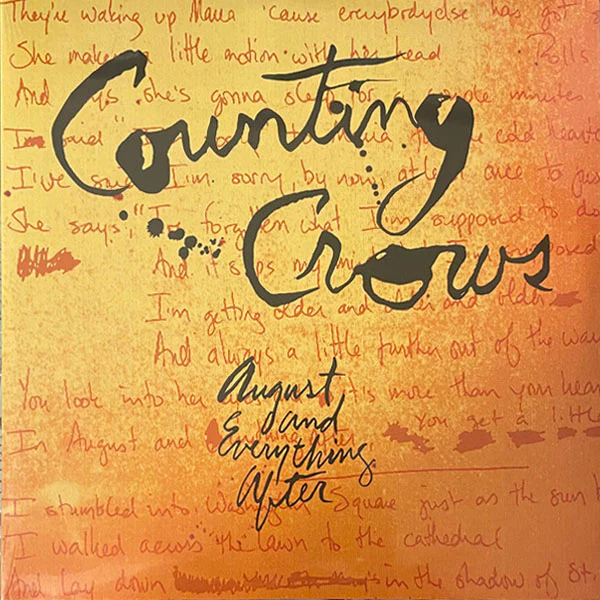 They're waking up Maria 'cause everybody else has got
She makes a little motion with her head
Rolls
And says she's gonna sleep for a couple minutes
Counting
I said the cold
I've said I'm sorry by now, at least once to
She says, "I've forgiven what I'm supposed to do
Crows
And it slips my mind
I'm getting older and older and older
And always a little further out of the way
You look into her it's more than your
August
and
You get a little
In August and
Everything
After
I stumbled into Washington Square just as the sun
I walked across the lawn to the cathedral
And lay down in the shadow of St.